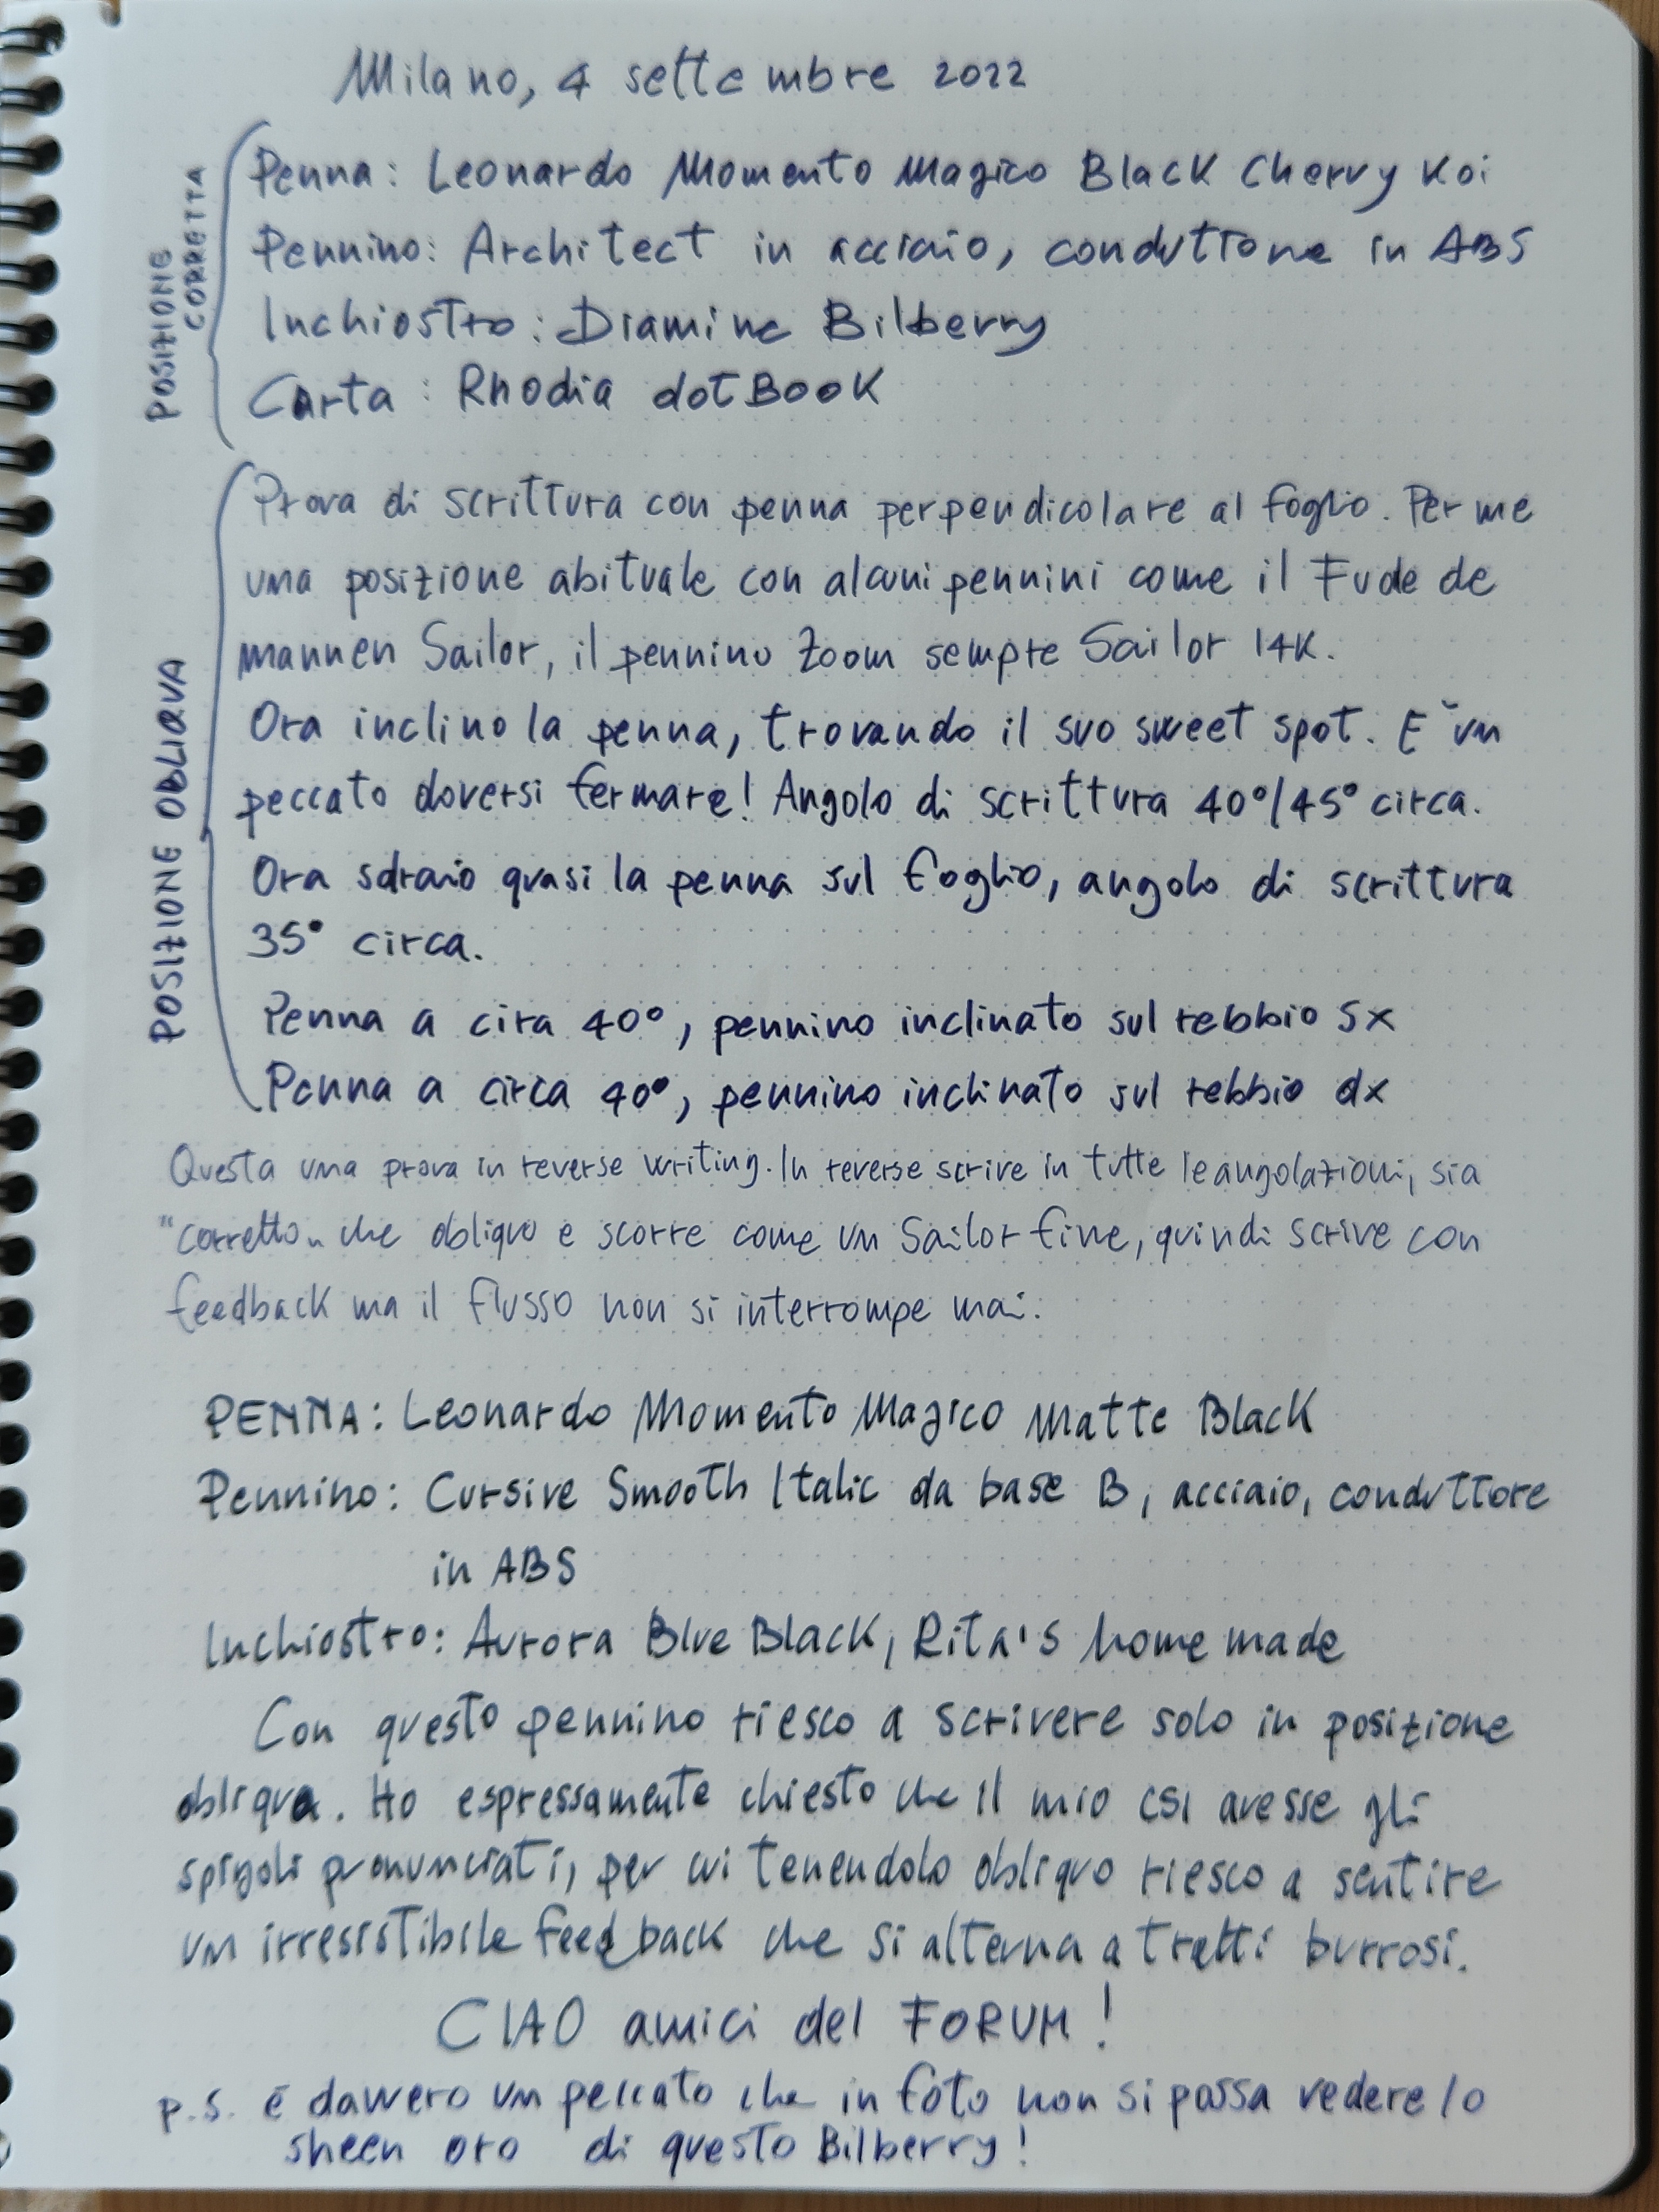 Milano, 4 settembre 2022
POSIZIONE
CORRETTA
Penna: Leonardo Momento Magico Black Cherry Koi
Pennino: Architect in acciaio, conduttore in ABS
Inchiostro: Diamine Bilberry
Carta: Rhodia dotBook
POSIZIONE OBLIQUA
Prova di scrittura con penna perpendicolare al foglio. Per me
una posizione abituale con alcuni pennini come il Fude de
mannen Sailor, il pennino Zoom sempre Sailor 14K.
Ora inclino la penna, trovando il suo sweet spot. E` un
peccato doversi fermare! Angolo di scrittura 40°/45° circa.
Ora sdraio quasi la penna sul foglio, angolo di scrittura
35° circa.
Penna a cira 40°, pennino inclinato sul rebbio sx
Penna a circa 40°, pennino inclinato sul rebbio dx
Questa una prova in reverse writing. In reverse scrive in tutte le angolazioni, sia
"corretto" che obliquo e scorre come un Sailor fine, quindi scrive con
feedback ma il flusso non si interrompe mai.
PENNA: Leonardo Momento Magico Matte Black
Pennino: Cursive Smooth Italic da base B, acciaio, conduttore
in ABS
Inchiostro: Aurora Blue Black, Rita's home made
Con questo pennino riesco a scrivere solo in posizione
obliqua. Ho espressamente chiesto che il mio CSI avesse gli
spigoli pronunciati, per cui tenendolo obliquo riesco a sentire
un irresistibile feedback che si alterna a tratti burrosi.
CIAO amici del FORUM!
p.s. è davvero un peccato che in foto non si possa vedere lo
sheen oro di questo Bilberry!